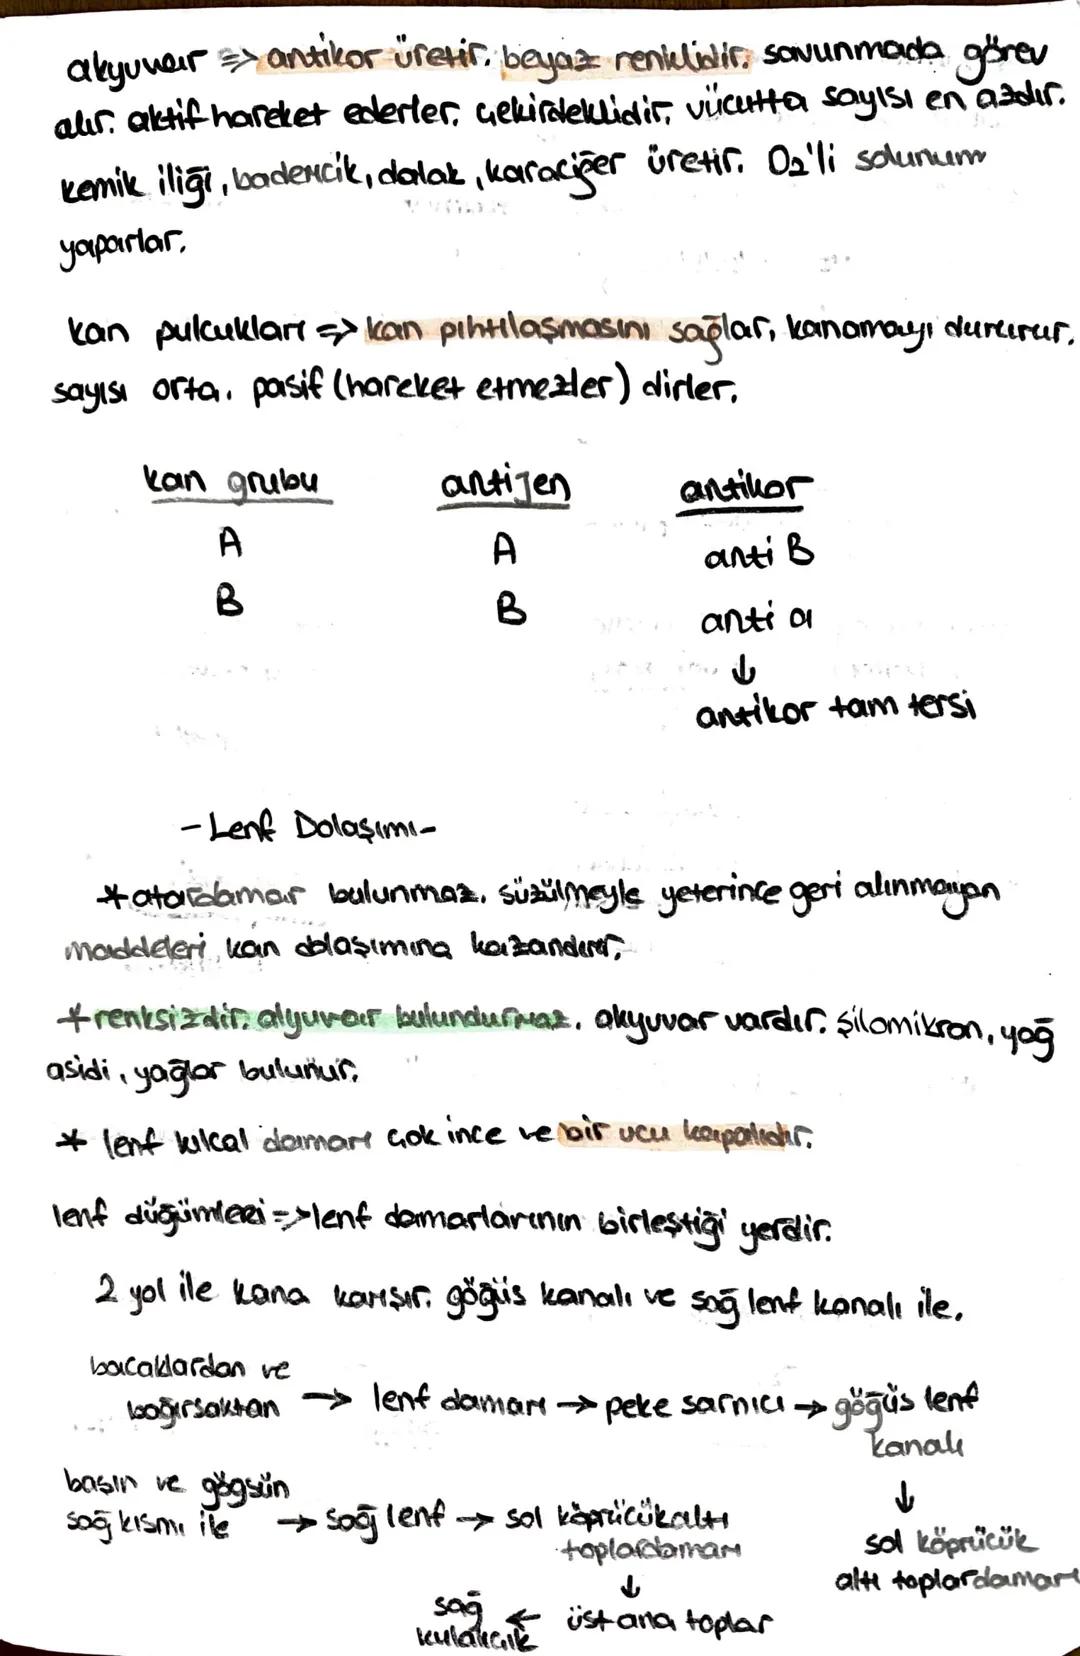 akyuvar => antikor üretir. beyaz renklidir. savunmada görev
alır. aktif hareket ederler. çekirdeklidir. vücutta sayısı en azdır.
kemik iliği, bademcik, dalak, karaciğer üretir. O2'li solunum
yaparlar.
kan pulcukları => kan pıhtılaşmasını sağlar, kanamayı durdurur.
sayısı orta. pasif (hareket etmezler) dirler.
kan grubu antijen antikor
A A anti B
B B anti a
↓
antikor tam tersi
- Lenf Dolaşımı -
* atardamar bulunmaz. süzülmeyle yeterince geri alınmayan
maddeleri kan dolaşımına kazandırır.
* renksizdir. alyuvar bulundurmaz. akyuvar vardır. şilomikron, yağ
asidi, yağlar bulunur.
* lenf kılcal damarı çok ince ve bir ucu kapalıdır.
lenf düğümleri => lenf damarlarının birleştiği yerdir.
2 yol ile kana karışır. göğüs kanalı ve sağ lenf kanalı ile.
bacaklardan ve
bağırsaktan → lenf damarı → peke sarnıcı → göğüs lenf
kanalı
↓
sol köprücük
altı toplardamarı
başın ve göğsün
sağ kısmı ile → sağ lenf → sol köprücükaltı
toplardamarı
↓
üst ana toplar
← sağ
kulakçık